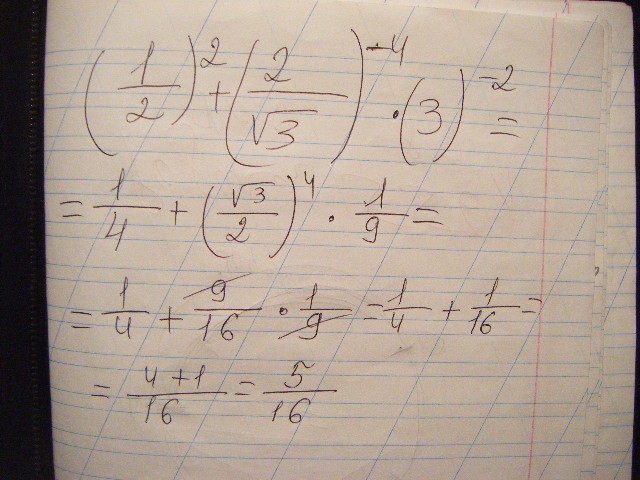 (1/2)² + (2/√3)⁻⁴ · (3)⁻² =
= 1/4 + (√3/2)⁴ · 1/9 =
= 1/4 + 9/16 · 1/9 = 1/4 + 1/16 =
= 4+1/16 = 5/16